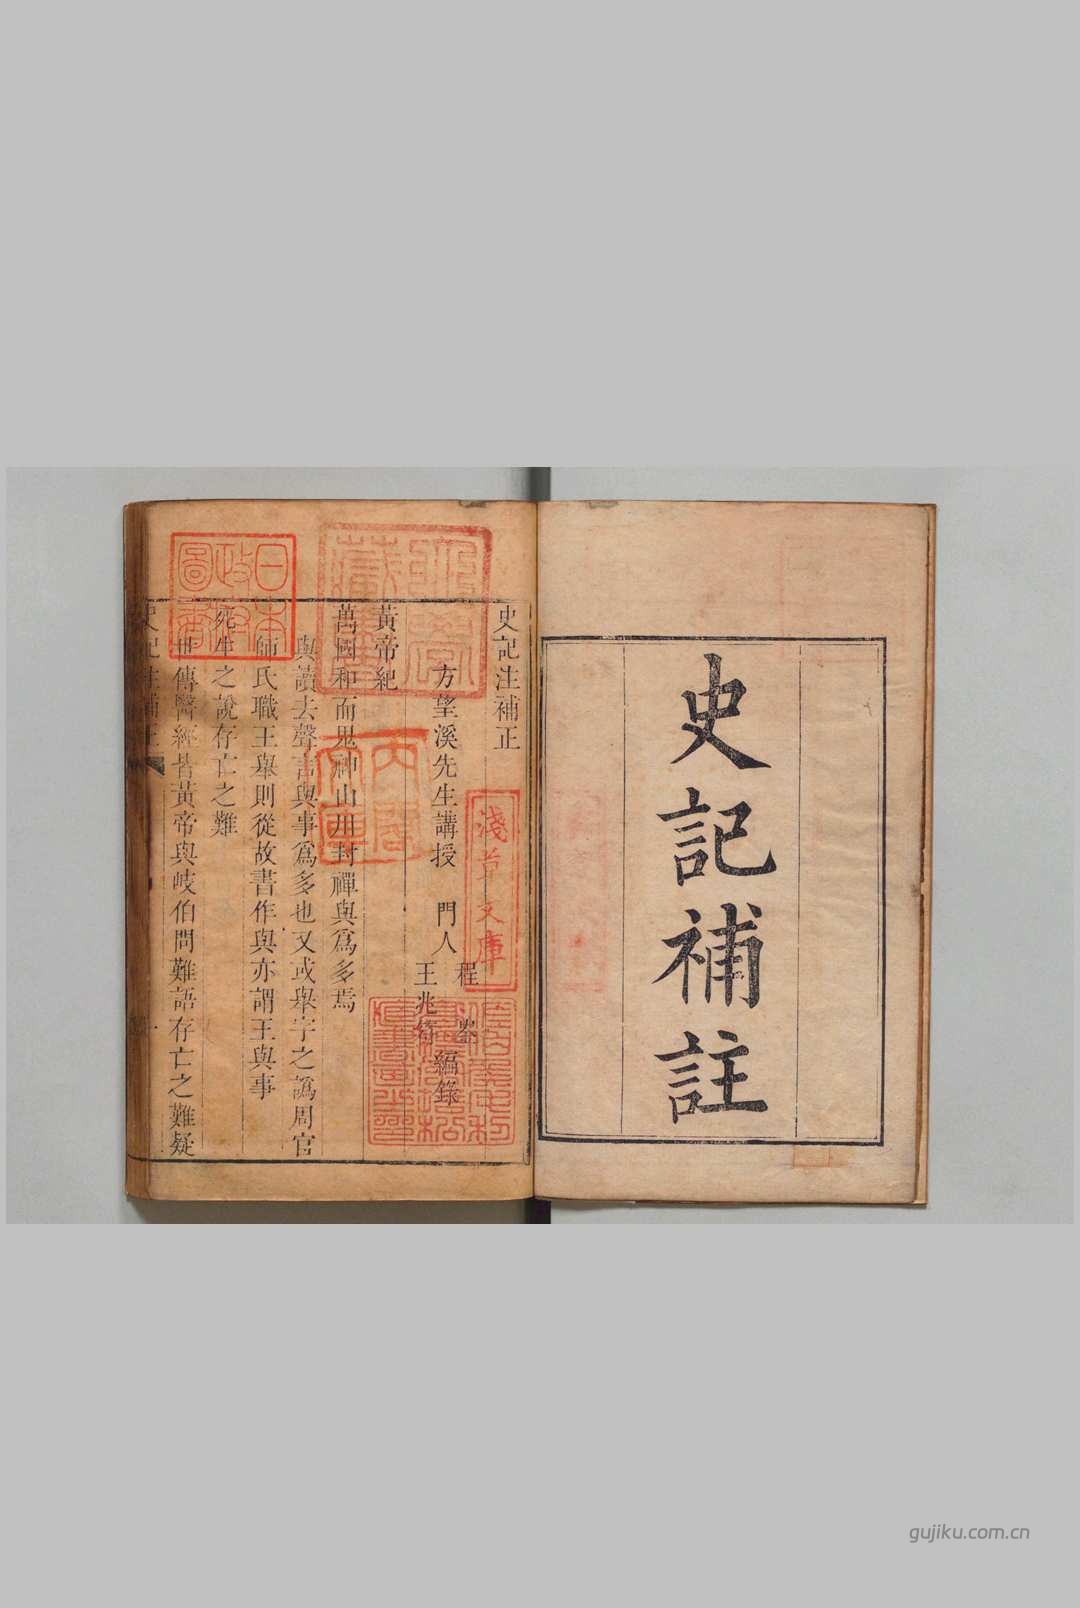 史記補註
史記注補正
方望溪先生講授 門人
程崟
王兆符
編錄
黃帝紀
萬國和而鬼神山川封禪與為多焉
與讀去聲言與事為多也又或舉字之譌周官
師氏職王舉則從故書作與亦謂王與事
死生之說存亡之難
世傳醫經皆黃帝與岐伯問難語存亡之難疑
史記注補正
一
日本政府圖書
淺草文庫
內閣文庫
gujiku.com.cn